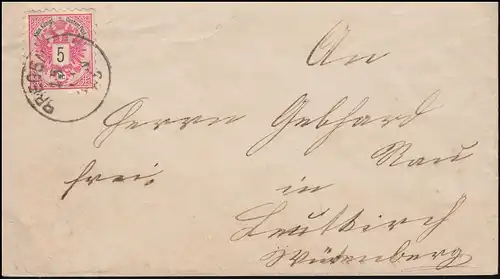 5
An
Herrn Gebhard
Rau
frei.
in
Leutkirch
Würtenberg